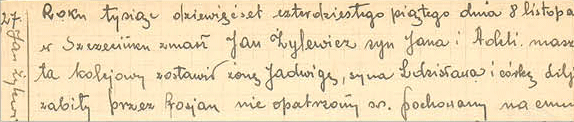 27.
Jan Żylewi
Roku tysiąc dziewięćset czterdziestego piątego dnia 8 listopa
w Szczecinku zmarł Jan Żylewicz syn Jana i Adeli. masz
ta kolejowy zostawił żonę Jadwigę, syna Zdzisława i córkę
zabity przez Rosjan nie opatrzony św. pochowany na cmen